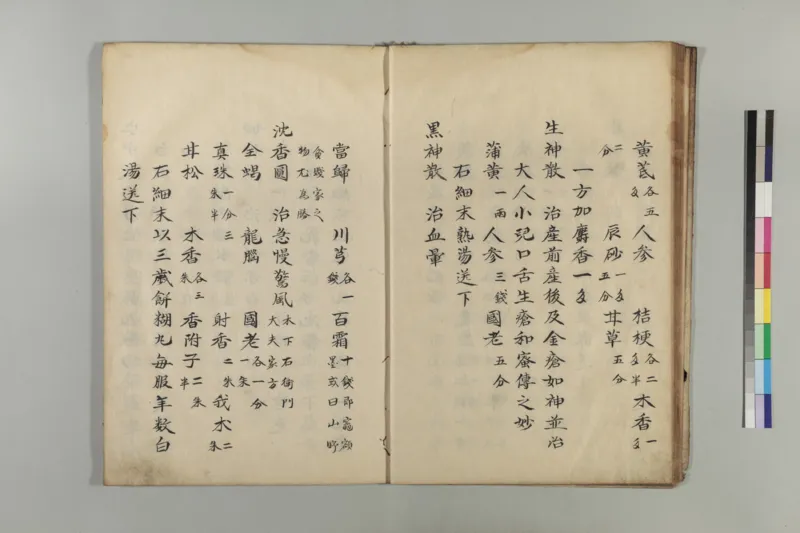 黄芪各五匁 人参 桔梗各二匁半 木香一匁
二分 辰砂一匁五分 甘草五分
一方加麝香一匁
生神散 治産前産後及金瘡如神並治
大人小児口舌生瘡和蜜傳之妙
蒲黄一両 人参三銭 國老五分
右細末熟湯送下
黒神散 治血暈
當歸 川芎各一銭 百霜十銭即竈額墨或曰山野
貧賤家之物尤為勝
沈香圓 治急慢驚風木下右衛門大夫家方
全蝎 龍腦 國老各一分一朱
真珠一分三朱半 射香二朱 我木二朱
甘松 木香各三朱 香附子二朱半
右細末以三歳餅糊丸毎服年数白
湯送下